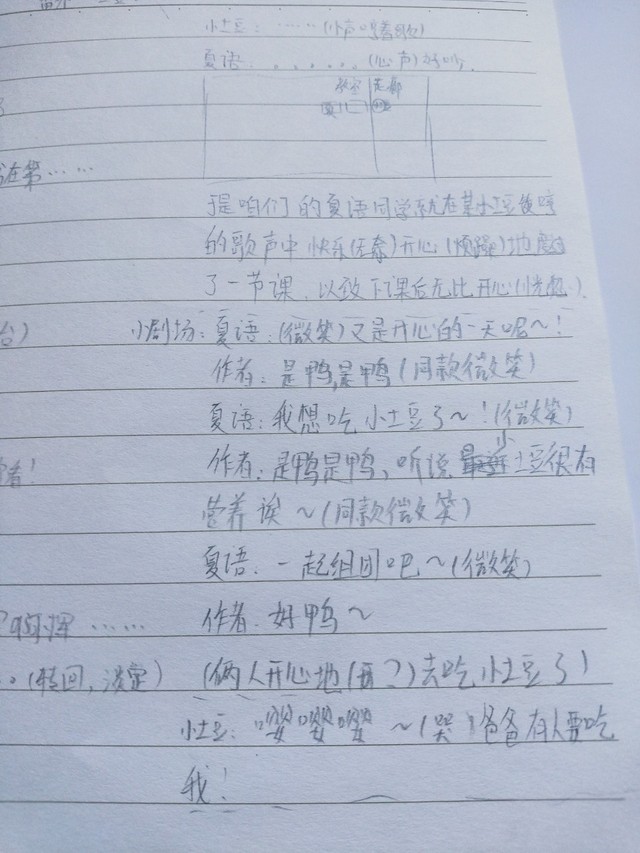 小土豆：……(小声唱着歌)
夏语：……(心声)好听
教室 走廊
在第……
于是咱们的夏语同学就在某小土豆
的歌声中快乐(无奈)开心(烦躁)地度过
了一节课，以致下课后无比开心(恍惚)。
台) 小剧场：夏语：(微笑)又是开心的一天呢～！
作者：是鸭,是鸭(同款微笑)
夏语：我想吃小土豆了～！(微笑)
者！ 作者：是鸭是鸭，听说小土豆很有
营养诶～(同款微笑)
夏语：一起组团吧～(微笑)
…… 作者：好鸭～
(转回，淡定) (俩人开心地(再？)去吃小土豆了)
小土豆：嘤嘤嘤～(哭)爸爸有人要吃
我！